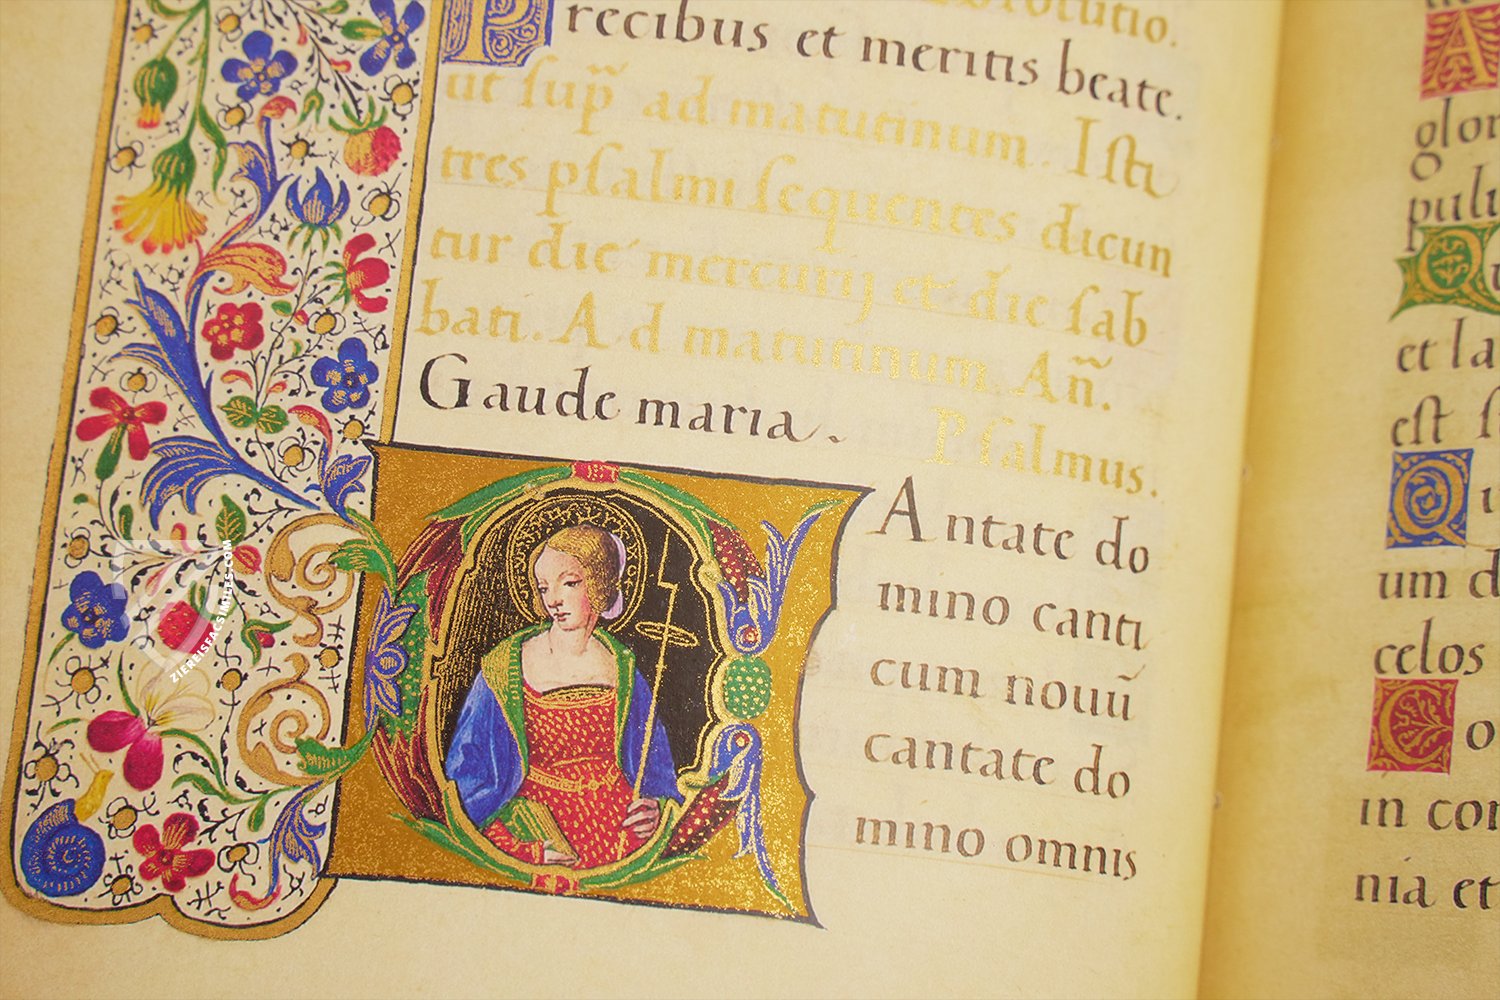 Absolutio.
Precibus et meritis beate.
ut sup̃ ad matutinum. Isti
tres psalmi sequentes dicun
tur die mercurij et die sab
bati. Ad matutinum. Añ.
Gaude maria. Psalmus.
CAntate do
mino canti
cum nouũ
cantate do
mino omnis
A
glor
pulu
Q
et la
est s
Q
um d
celos
Co
in con
nia et
ZIEREISFACSIMILES.COM